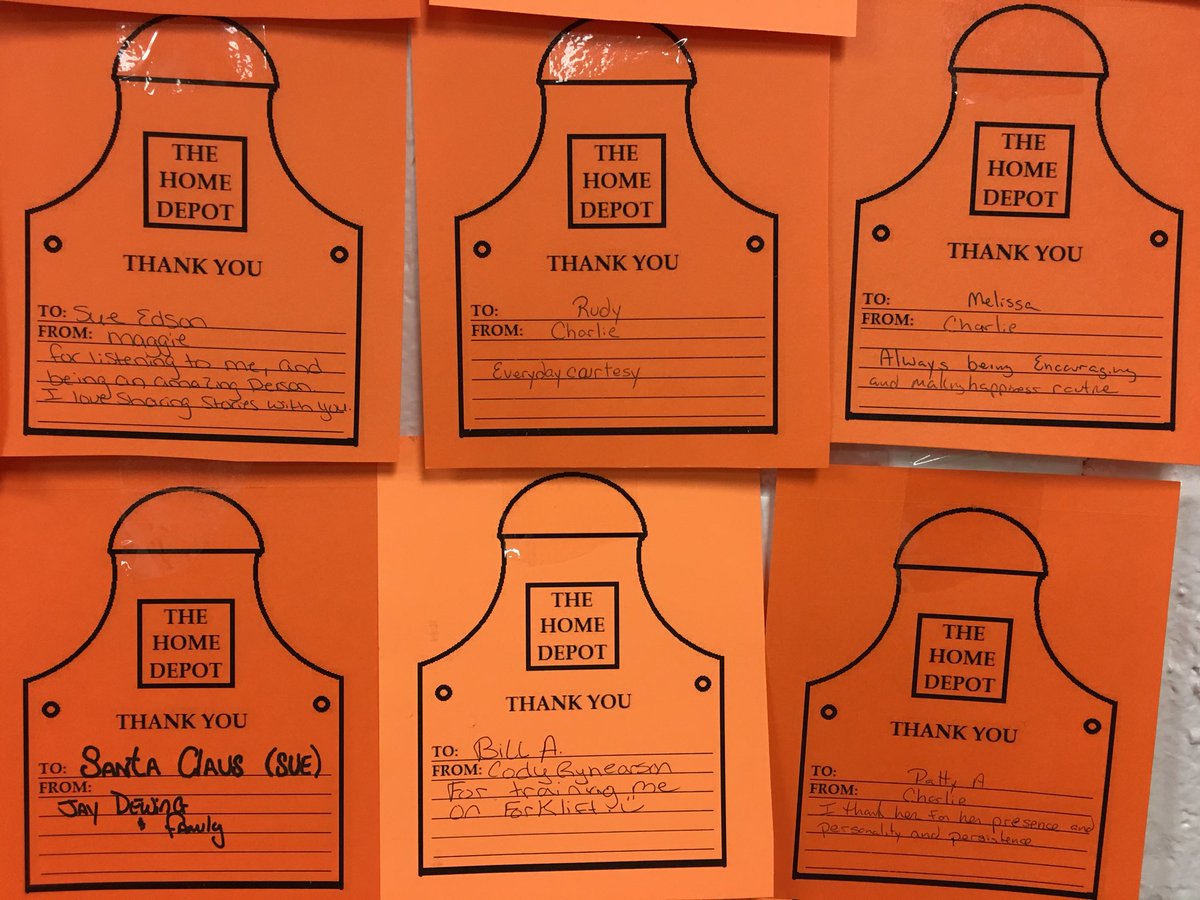 THE
HOME
DEPOT
THANK YOU
TO: Sue Edson
FROM: Maggie
for listening to me, and
being an amazing person.
I love sharing stories with you.
THE
HOME
DEPOT
THANK YOU
TO: Rudy
FROM: Charlie
Everyday courtesy
THE
HOME
DEPOT
THANK YOU
TO: Melissa
FROM: Charlie
Always being Encouraging
and making happiness routine
THE
HOME
DEPOT
THANK YOU
TO: Santa Claus (Sue)
FROM:
Jay Dewing
& Family
THE
HOME
DEPOT
THANK YOU
TO: Bill A.
FROM: Cody Bynearson
For training me
on Forklift :)
THE
HOME
DEPOT
THANK YOU
TO: Patty A
FROM: Charlie
I thank her for her presence and
personality and persistence